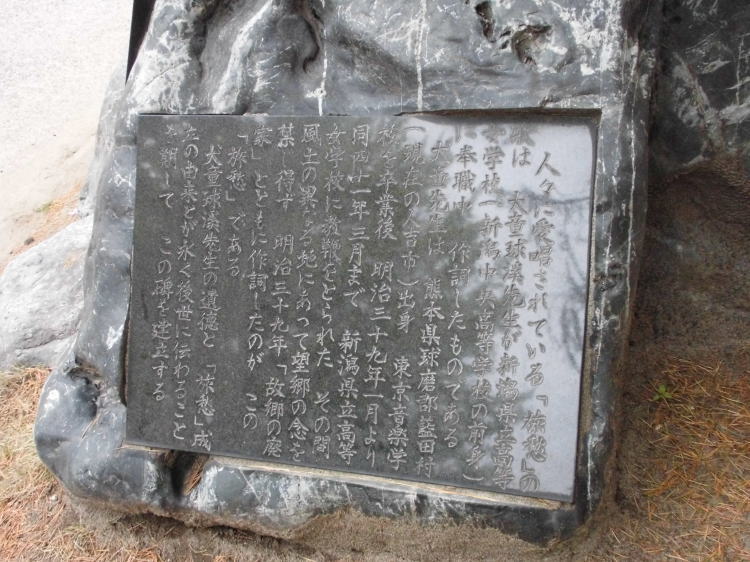 人々に愛唱されている「旅愁」の
歌は 犬童球渓先生が新潟県立高等
女学校(新潟中央高等学校の前身)
に奉職中 作詞したものである
犬童先生は 熊本県球磨郡藍田村
(現在の人吉市)出身 東京音楽学
校を卒業後 明治三十九年一月より
同四十一年三月まで 新潟県立高等
女学校に教鞭をとられた その間
風土の異なる地にあって望郷の念を
禁じ得ず 明治三十九年「故郷の廃
家」とともに作詞したのが この
「旅愁」である
犬童球渓先生の遺徳と 「旅愁」成
立の由来とが永く後世に伝わること
を願って この碑を建立する